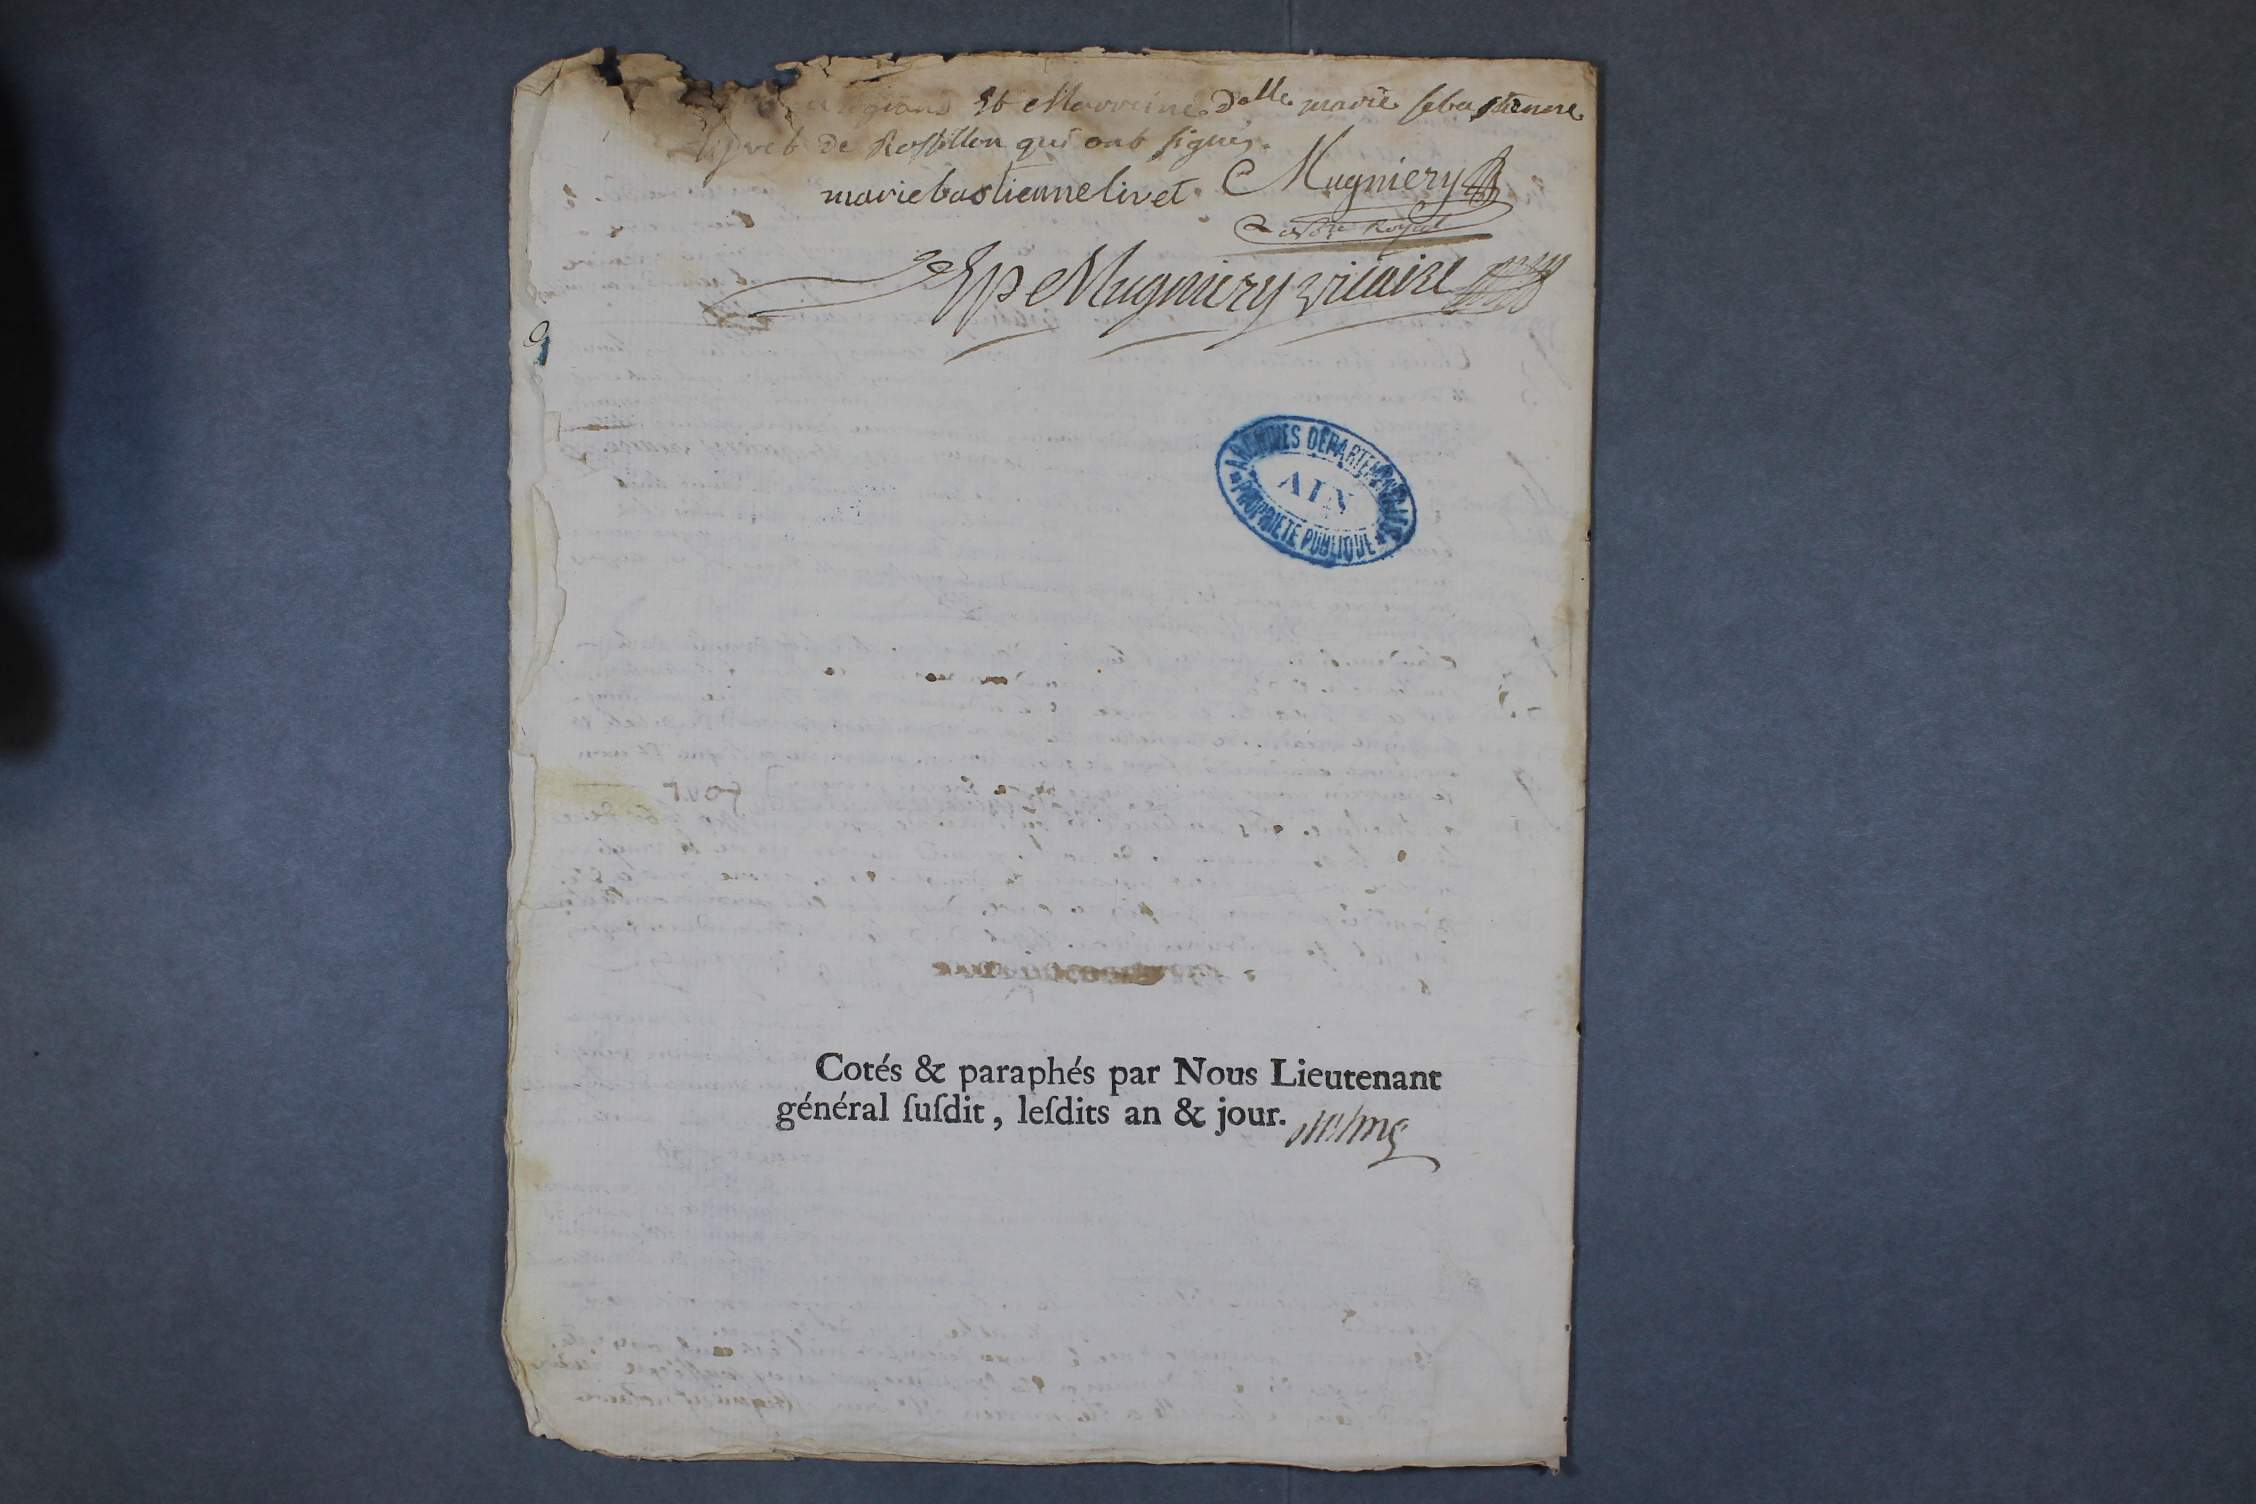 et Marreine Delle marie sebastienne
Livet de Rossillon qui ont signés.
mariebastiennelivet Mugniery
Royal
Mugniery vicaire
ARCHIVES DEPARTEMENTALES
AIN
PROPRIETE PUBLIQUE
Cotés & paraphés par Nous Lieutenant
général ſuſdit, leſdits an & jour.